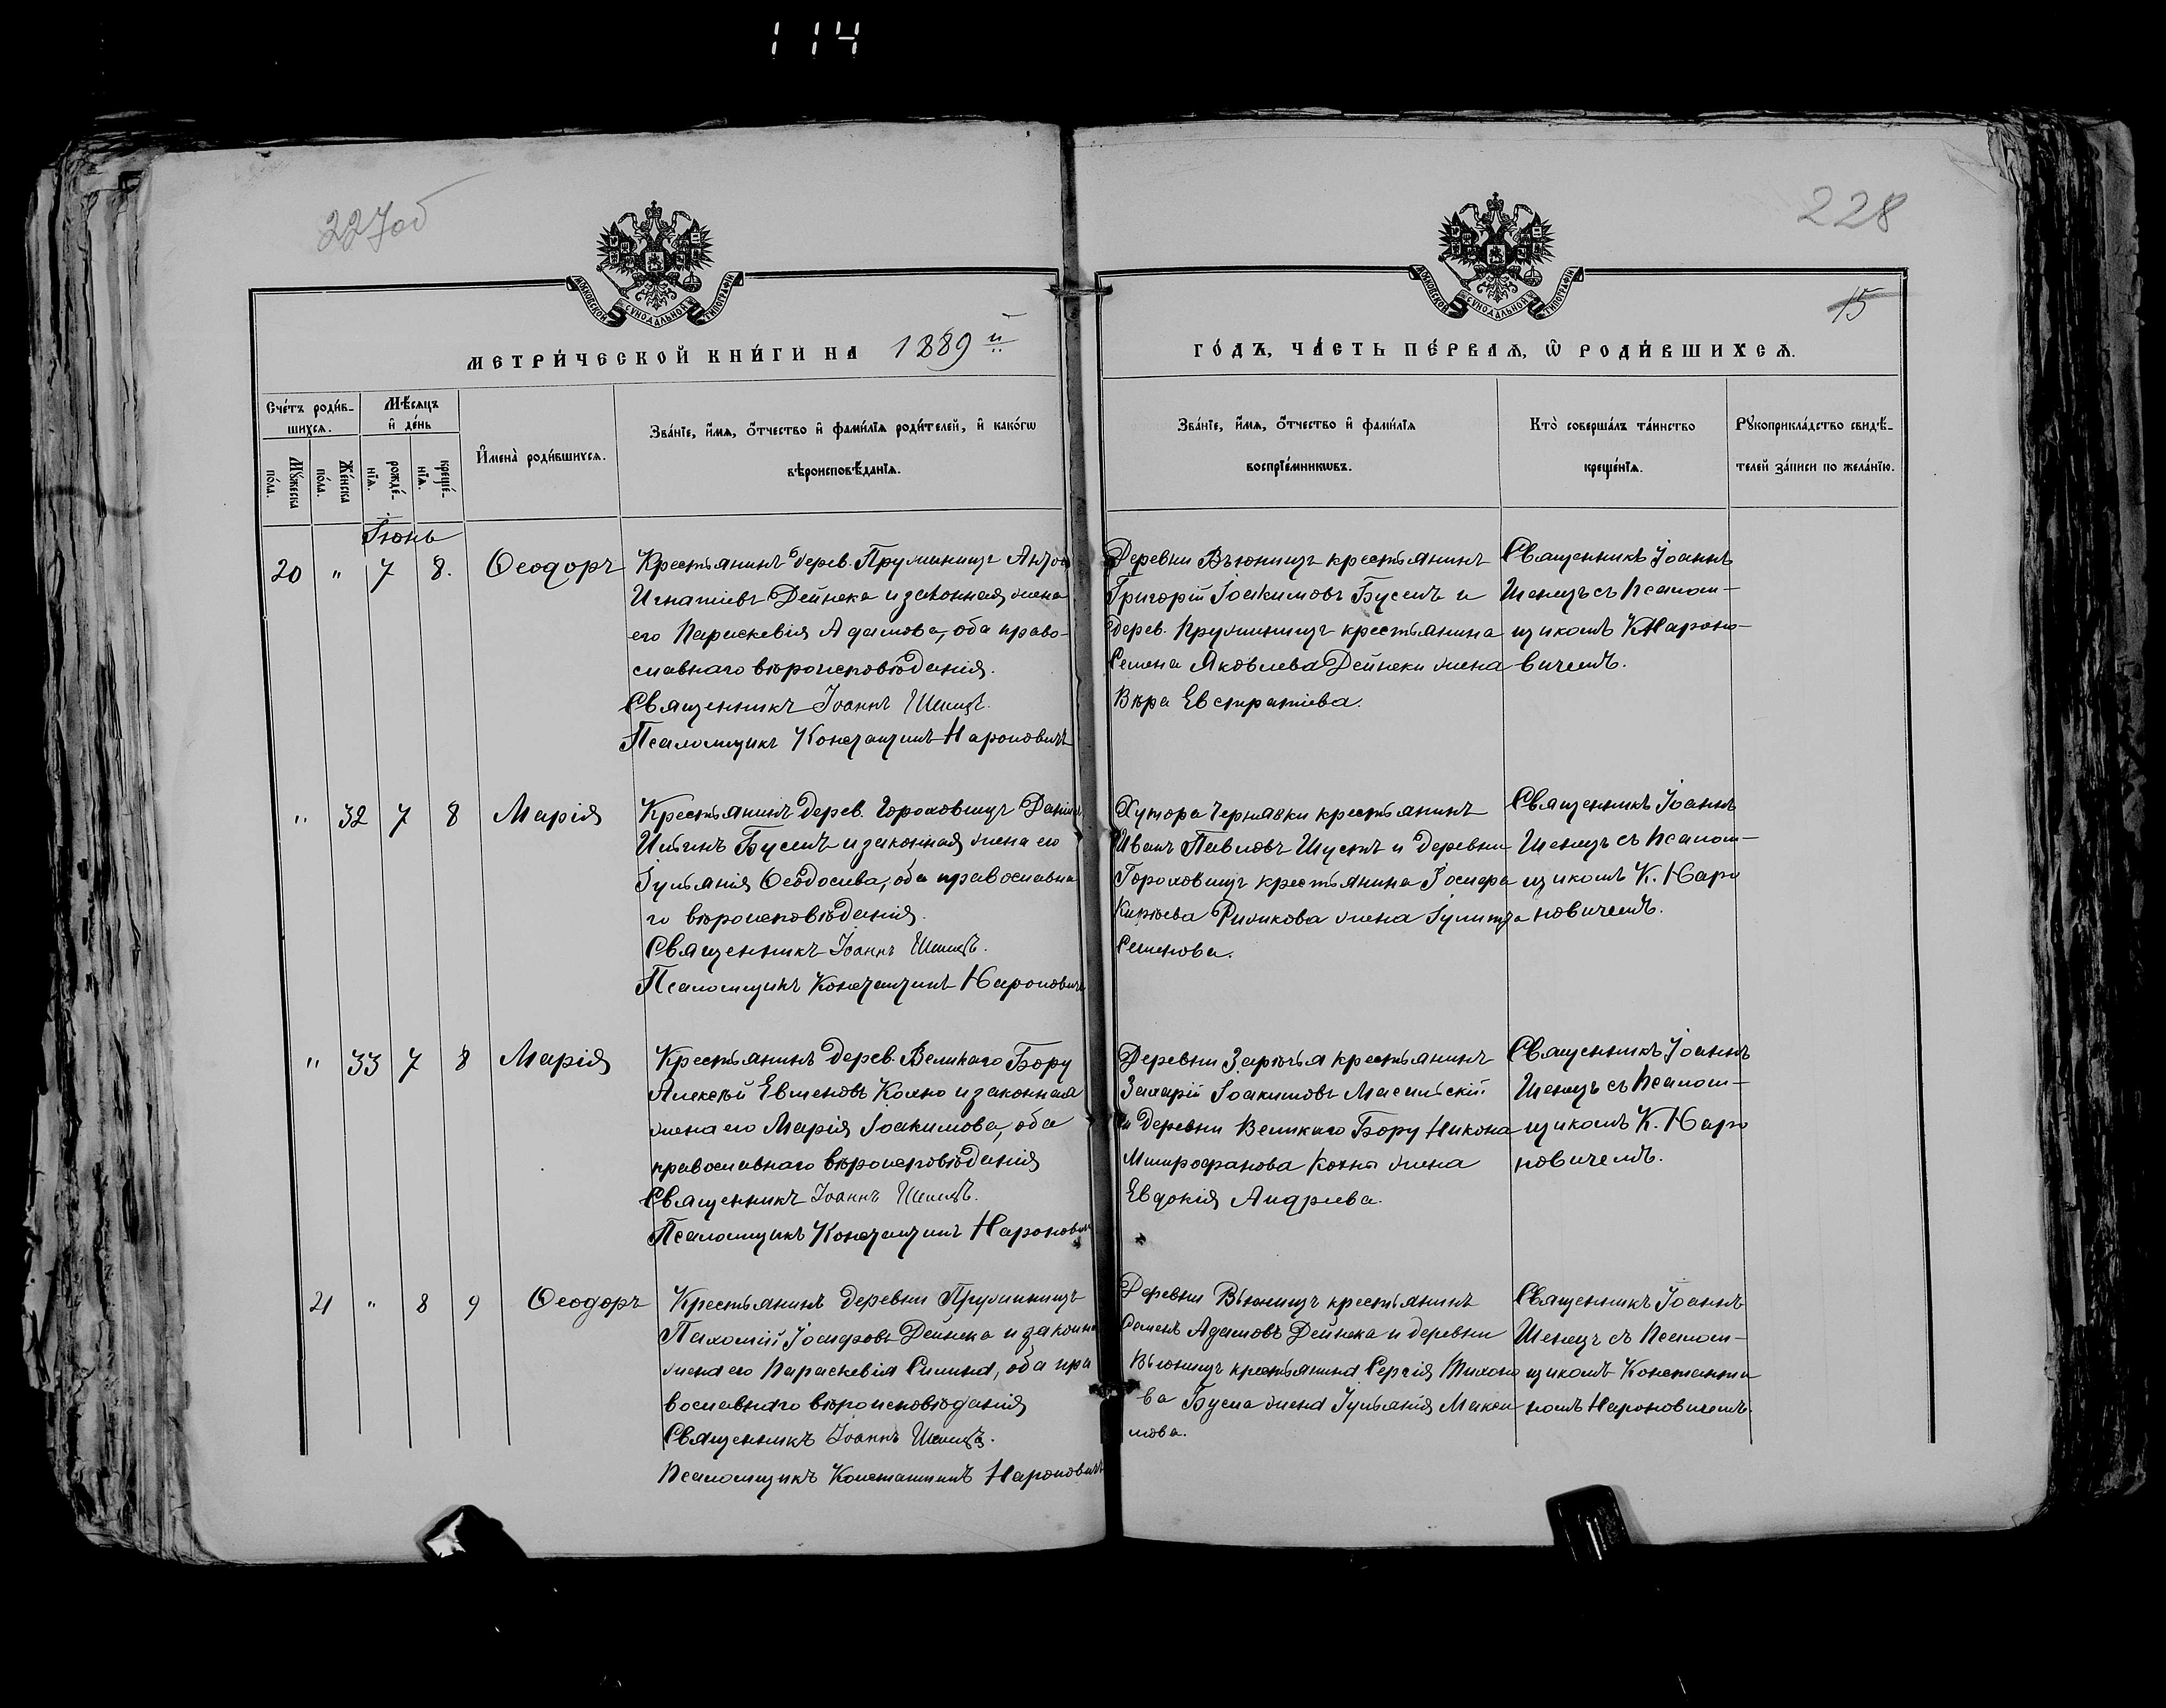 114
227об
228
15
МОСКОВСКОЙ СѴНОДАЛЬНОЙ ТИПОГРАФІИ
МОСКОВСКОЙ СѴНОДАЛЬНОЙ ТИПОГРАФІИ
МЕТРИ́ЧЕСКОЙ КНИ́ГИ НА 1889й
ГО́ДЪ, ЧА́СТЬ ПЕ́РВАѦ, Ѽ РОДИ́ВШИХСѦ.
Сче́тъ роди́в-
шихсѧ.
Мѣ́сѧцъ
и҆ де́нь
Му́жеска по́ла.
Же́нска по́ла.
рожде́-нїѧ.
креще́-нїѧ.
И҆мена̀ роди́вшихсѧ.
Зва́нїе, и҆́мѧ, ѻ҆́тчество и҆ фами́лїѧ роди́телей, и҆ како́гѡ
вѣроисповѣ́данїѧ.
Зва́нїе, и҆́мѧ, ѻ҆́тчество и҆ фами́лїѧ
воспрїе́мникѡвъ.
Кто̀ соверша́лъ та́инство
креще́нїѧ.
Рꙋкоприкла́дство свидѣ́-
телей за́писи по жела́нїю.
Іюнь
20 " 7 8. Ѳеодоръ
Крестьянинъ дерев. Пружинищъ
Игнатіевъ Дейнека и законная жена
его Параскевія Адамова, оба право-
славнаго вѣроисповѣданія.
Священникъ Іоаннъ Шенецъ.
Псаломщикъ Константинъ Нароновичъ
Деревни Вьюнищъ крестьянинъ
Григорій Іоакимовъ Буселъ и
дерев. Пружинищъ крестьянина
Семена Яковлева Дейнеки жена
Вѣра Евстратіева.
Священникъ Іоаннъ
Шенецъ съ псалом-
щикомъ К. Нароно-
вичемъ.
" 32 7 8 Марія
Крестьянинъ дерев. Гороховищъ Даніилъ
Буселъ и законная жена его
Іуліанія Ѳеодосіева, оба православна
го вѣроисповѣданія.
Священникъ Іоаннъ Шенецъ.
Псаломщикъ Константинъ Нароновичъ
Хутора Чернявки крестьянинъ
Иванъ Павловъ Шустъ и деревни
Гороховищъ крестьянина Іосифа
жена Іулитта
Семенова.
Священникъ Іоаннъ
Шенецъ съ псалом-
щикомъ К. Наро
новичемъ.
" 33 7 8 Марія
Крестьянинъ дерев. Великаго Бору
Алексѣй Евменовъ Кохно и законная
жена его Марія Іоакимова, оба
православнаго вѣроисповѣданія
Священникъ Іоаннъ Шенецъ.
Псаломщикъ Константинъ Нароновичъ
Деревни Зарѣчья крестьянинъ
Захарій Іоакимовъ
и деревни Великаго Бору Никона
Митрофанова Кохна жена
Евдокія Андреева.
Священникъ Іоаннъ
Шенецъ съ псалом-
щикомъ К. Наро
новичемъ.
21 " 8 9 Ѳеодоръ
Крестьянинъ деревни Пружинищъ
Пахомій Іосифовъ Дейнека и законная
жена его Параскевія оба пра
вославнаго вѣроисповѣданія
Священникъ Іоаннъ Шенецъ.
Псаломщикъ Константинъ Нароновичъ
Деревни Вьюнищъ крестьянинъ
Семенъ Адамовъ Дейнека и деревни
Вьюнищъ крестьянина Сергія Тихоно
ва Бусла жена Іуліанія Макси
мова.
Священникъ Іоаннъ
Шенецъ съ псалом-
щикомъ Константи
номъ Нароновичемъ.